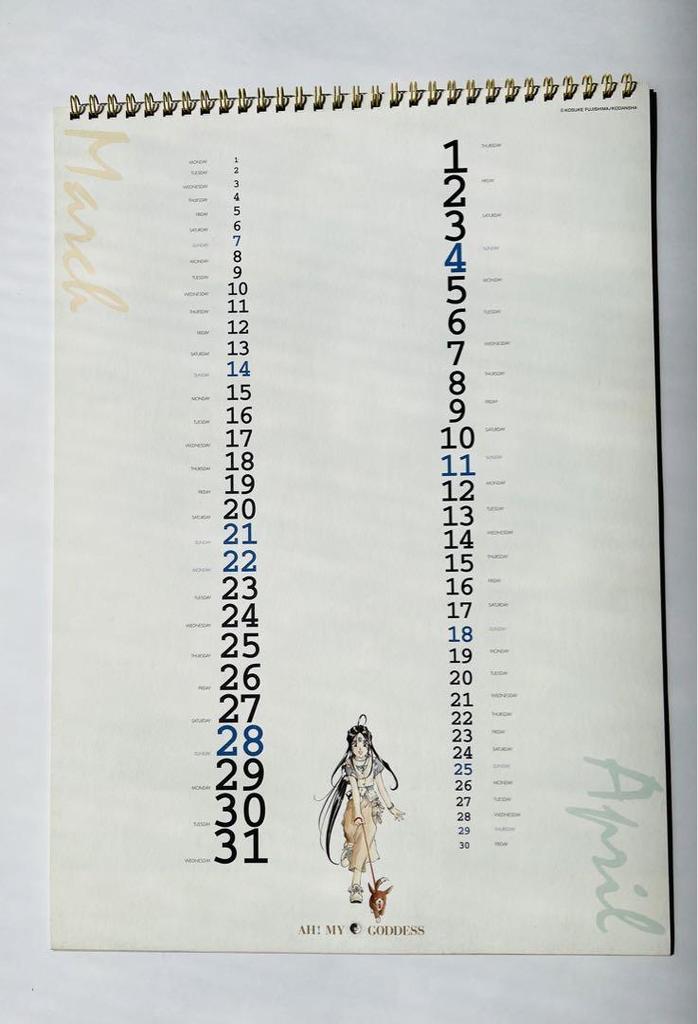 ©KOSUKE FUJISHIMA/KODANSHA
March
MONDAY 1
TUESDAY 2
WEDNESDAY 3
THURSDAY 4
FRIDAY 5
SATURDAY 6
SUNDAY 7
MONDAY 8
TUESDAY 9
WEDNESDAY 10
THURSDAY 11
FRIDAY 12
SATURDAY 13
SUNDAY 14
MONDAY 15
TUESDAY 16
WEDNESDAY 17
THURSDAY 18
FRIDAY 19
SATURDAY 20
SUNDAY 21
MONDAY 22
TUESDAY 23
WEDNESDAY 24
THURSDAY 25
FRIDAY 26
SATURDAY 27
SUNDAY 28
MONDAY 29
TUESDAY 30
WEDNESDAY 31
1 THURSDAY
2 FRIDAY
3 SATURDAY
4 SUNDAY
5 MONDAY
6 TUESDAY
7 WEDNESDAY
8 THURSDAY
9 FRIDAY
10 SATURDAY
11 SUNDAY
12 MONDAY
13 TUESDAY
14 WEDNESDAY
15 THURSDAY
16 FRIDAY
17 SATURDAY
18 SUNDAY
19 MONDAY
20 TUESDAY
21 WEDNESDAY
22 THURSDAY
23 FRIDAY
24 SATURDAY
25 SUNDAY
26 MONDAY
27 TUESDAY
28 WEDNESDAY
29 THURSDAY
30 FRIDAY
April
AH! MY GODDESS